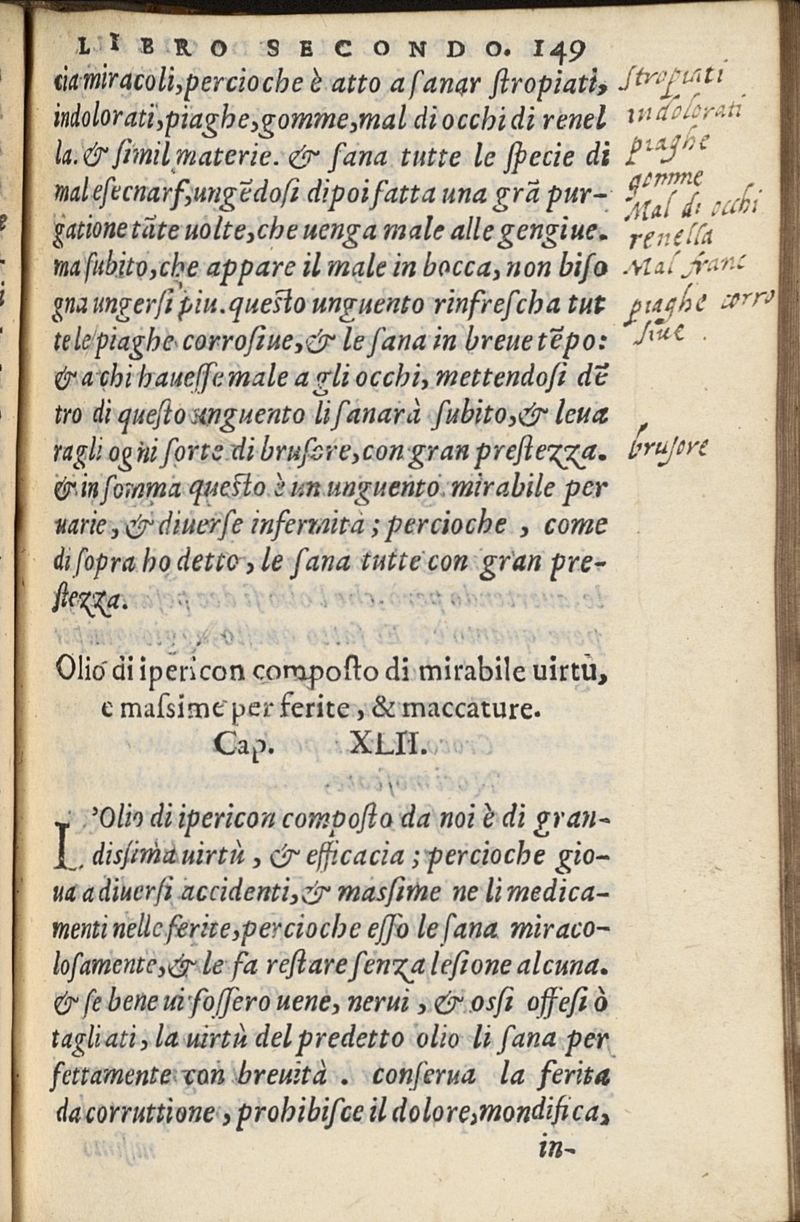 LIBRO SECONDO. 149
cia miracoli, percioche è atto a sanar stropiati,
indolorati, piaghe, gomme, mal di occhi di renel
la. & simil materie. & sana tutte le specie di
mal esecnarf, ungẽdosi dipoi fatta una grã pur-
gatione tãte uolte, che uenga male alle gengiue.
ma subito, che appare il male in bocca, non biso
gna ungersi piu. questo unguento rinfrescha tut
te le piaghe corrosiue, & le sana in breue tẽpo:
& a chi hauesse male a gli occhi, mettendosi dẽ
tro di questo unguento li sanarà subito, & leua
ragli ogni sorte di brusore, con gran prestezza.
& in somma questo è un unguento mirabile per
uarie, & diuerse infermità; percioche, come
di sopra ho detto, le sana tutte con gran pre-
stezza.
Olio di ipericon composto di mirabile uirtù,
e massime per ferite, & maccature.
Cap. XLII.
L'Olio di ipericon composto da noi è di gran-
dissima uirtù, & efficacia; percioche gio-
ua a diuersi accidenti, & massime ne li medica-
menti nelle ferite, percioche esso le sana miraco-
losamente, & le fa restare senza lesione alcuna.
& se bene ui fossero uene, nerui, & ossi offesi ò
tagliati, la uirtù del predetto olio li sana per
fettamente con breuità. conserua la ferita
da corruttione, prohibisce il dolore, mondifica,
in-
stropiati
indolorati
piaghe
gomme
Mal di occhi
renella
Mal franc
piaghe corro
siue.
brusore